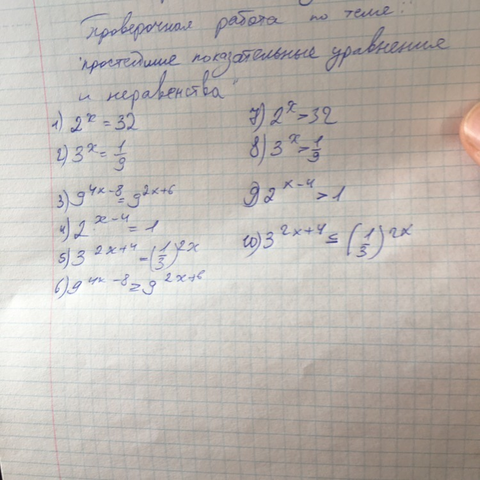 Проверочная работа по теме:
"простейшие показательные уравнения
и неравенства"
1) 2^x = 32
2) 3^x = 1/9
3) 9^(4x-8) = 9^(2x+6)
4) 2^(x-4) = 1
5) 3^(2x+4) = (1/3)^(2x)
6) 9^(4x-8) ≥ 9^(2x+6)
7) 2^x > 32
8) 3^x > 1/9
9) 2^(x-4) > 1
10) 3^(2x+4) ≤ (1/3)^(2x)